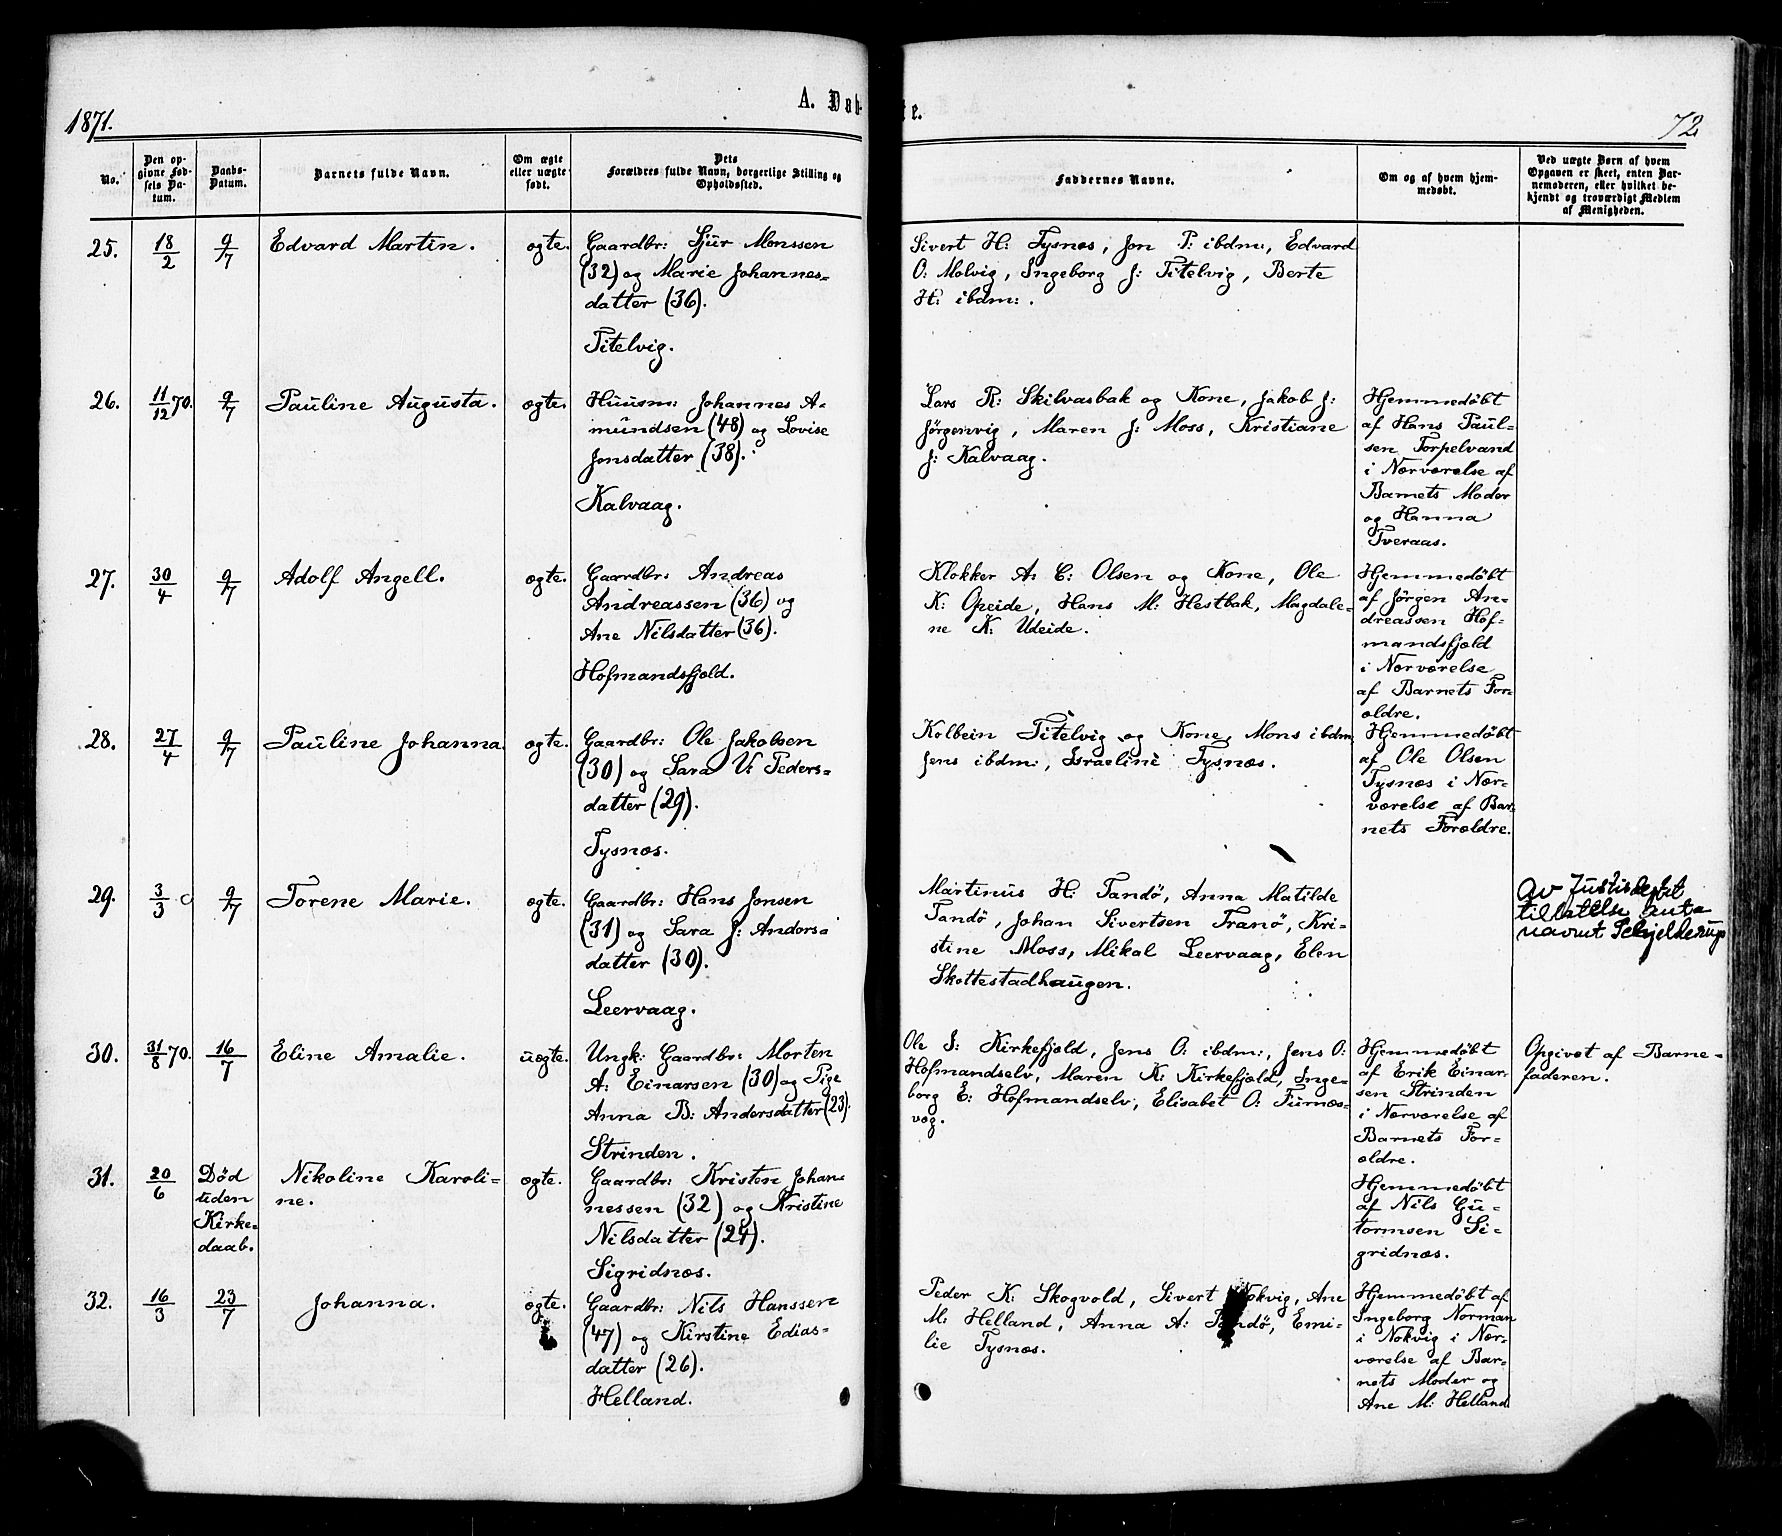 1871.
A. Døb-
te.
72
No.
Den op-
givne Fød-
sels Da-
tum.
Daabs-
Datum.
Barnets fulde Navn.
Om ægte
eller uægte
født.
Dets
Forældres fulde Navn, borgerlige Stilling og
Opholdssted.
Faddernes Navne.
Om og af hvem hjem-
medøbt.
Ved uægte Børn af hvem
Opgaven er skeet, enten Bar-
nemoderen, eller hvilket be-
kjendt og troværdigt Medlem
af Menigheden.
25.
18/2
9/7
Edvard Martin.
ægte.
Gaardbr: Sjur Monssen
(32) og Marie Johannes-
datter (36).
Titelvig.
Sivert H: Tysnæs, Jon P: ibdm:, Edvard
O: Molvig, Ingeborg J: Titelvig, Berte
H: ibdm:.
26.
11/12 70.
9/7
Pauline Augusta.
ægte.
Huusm: Johannes A-
mundsen (48) og Lovise
Jonsdatter (38).
Kalvaag.
Lars R: Skilvasbak og Kone, Jakob J:
Jörgenvig, Maren J: Moss, Kristiane
J: Kalvaag.
Hjemmedøbt
af Hans Paul-
sen Torpelvand
i Nærværelse af
Barnets Moder
og Hanna
Tveraas.
27.
30/4
9/7
Adolf Angell.
ægte.
Gaardbr: Andreas
Andreassen (36) og
Ane Nilsdatter (36).
Hofmandsfjæld.
Klokker A: C: Olsen og Kone, Ole
K: Opeide, Hans M: Hestbak, Magdale-
ne K: Udeide.
Hjemmedøbt
af Jørgen An-
dreassen Hof-
mandsfjæld
i Nærværelse
af Barnets For-
ældre.
28.
27/4
9/7
Pauline Johanna.
ægte.
Gaardbr: Ole Jakobsen
(30) og Sara V: Peders-
datter (29).
Tysnæs.
Kolbein Titelvig og Kone, Mons ibdm,
Jens ibdm:, Israeline Tysnæs.
Hjemmedøbt
af Ole Olsen
Tysnæs i Nær-
værelse af Bar-
nets Forældre.
29.
3/3
9/7
Torene Marie.
ægte.
Gaardbr: Hans Jensen
(31) og Sara J: Anders-
datter (30).
Leervaag.
Martinus H: Tandö, Anna Matilde
Tandö, Johan Sivertsen Tranö, Kri-
stine Moss, Mikal Leervaag, Elen
Skottestadhaugen.
Av Justisdeptet
tillatelse
navnet Schjelderup
30.
31/8 70.
16/7
Eline Amalie.
uægte.
Ungk: Gaardbr: Morten
A: Einarsen (30) og Pige
Anna B: Andersdatter (23).
Strinden.
Ole S: Kirkefjæld, Jens O: ibdm:, Jens O:
Hofmandselv, Maren K: Kirkefjæld, Inge-
borg E: Hofmandselv, Elisabet O: Furnæs-
vag.
Hjemmedøbt
af Erik Einar-
sen Strinden
i Nærværelse af
Barnets For-
ældre.
Opgivet af Barne-
faderen.
31.
20/6
Død
uden
Kirke-
daab.
Nikoline Karoli-
ne.
ægte.
Gaardbr: Kristen Johan-
nessen (32) og Kristine
Nilsdatter (24).
Sigridnæs.
Hjemmedøbt
af Nils Gu-
tormsen Si-
gridnæs.
32.
16/3
23/7
Johanna.
ægte.
Gaardbr: Nils Hanssen
(47) og Kirstine Edias-
datter (26).
Helland.
Peder K: Skogvold, Sivert Nokvig, Ane
M: Helland, Anna A: Tandö, Emi-
lie Tysnæs.
Hjemmedøbt af
Ingeborg Norman
i Nokvig i Nær-
værelse af Bar-
nets Moder og
Ane M: Helland